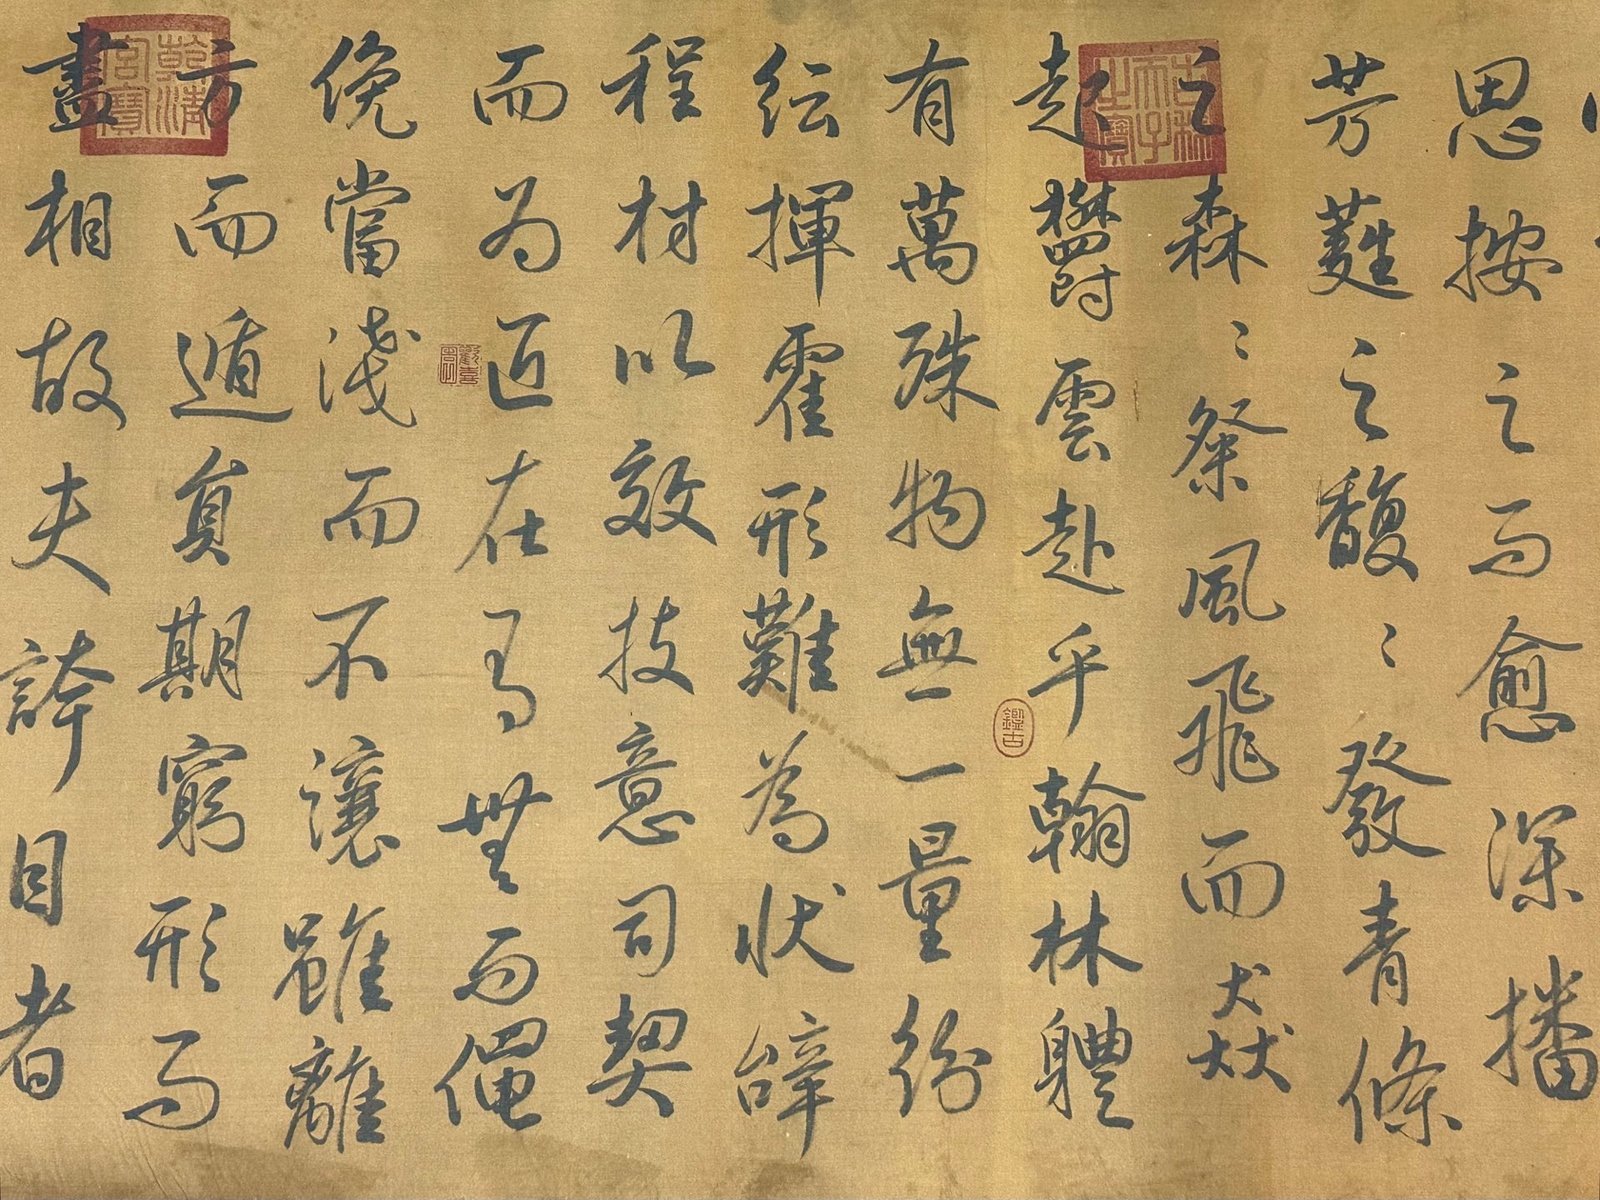 思按之而愈深播
芳蕤之馥〻發青條
之森〻粲風飛而猋
起欝雲赴乎翰林體
有萬殊物無一量紛
紜揮霍形難為狀辭
程材以效技意司契
而為匠在有無而僶
俛當淺而不讓雖離
方而遁員期窮形而
盡相故夫誇目者
古稀天子之寶
鑑古
乾清宮寶